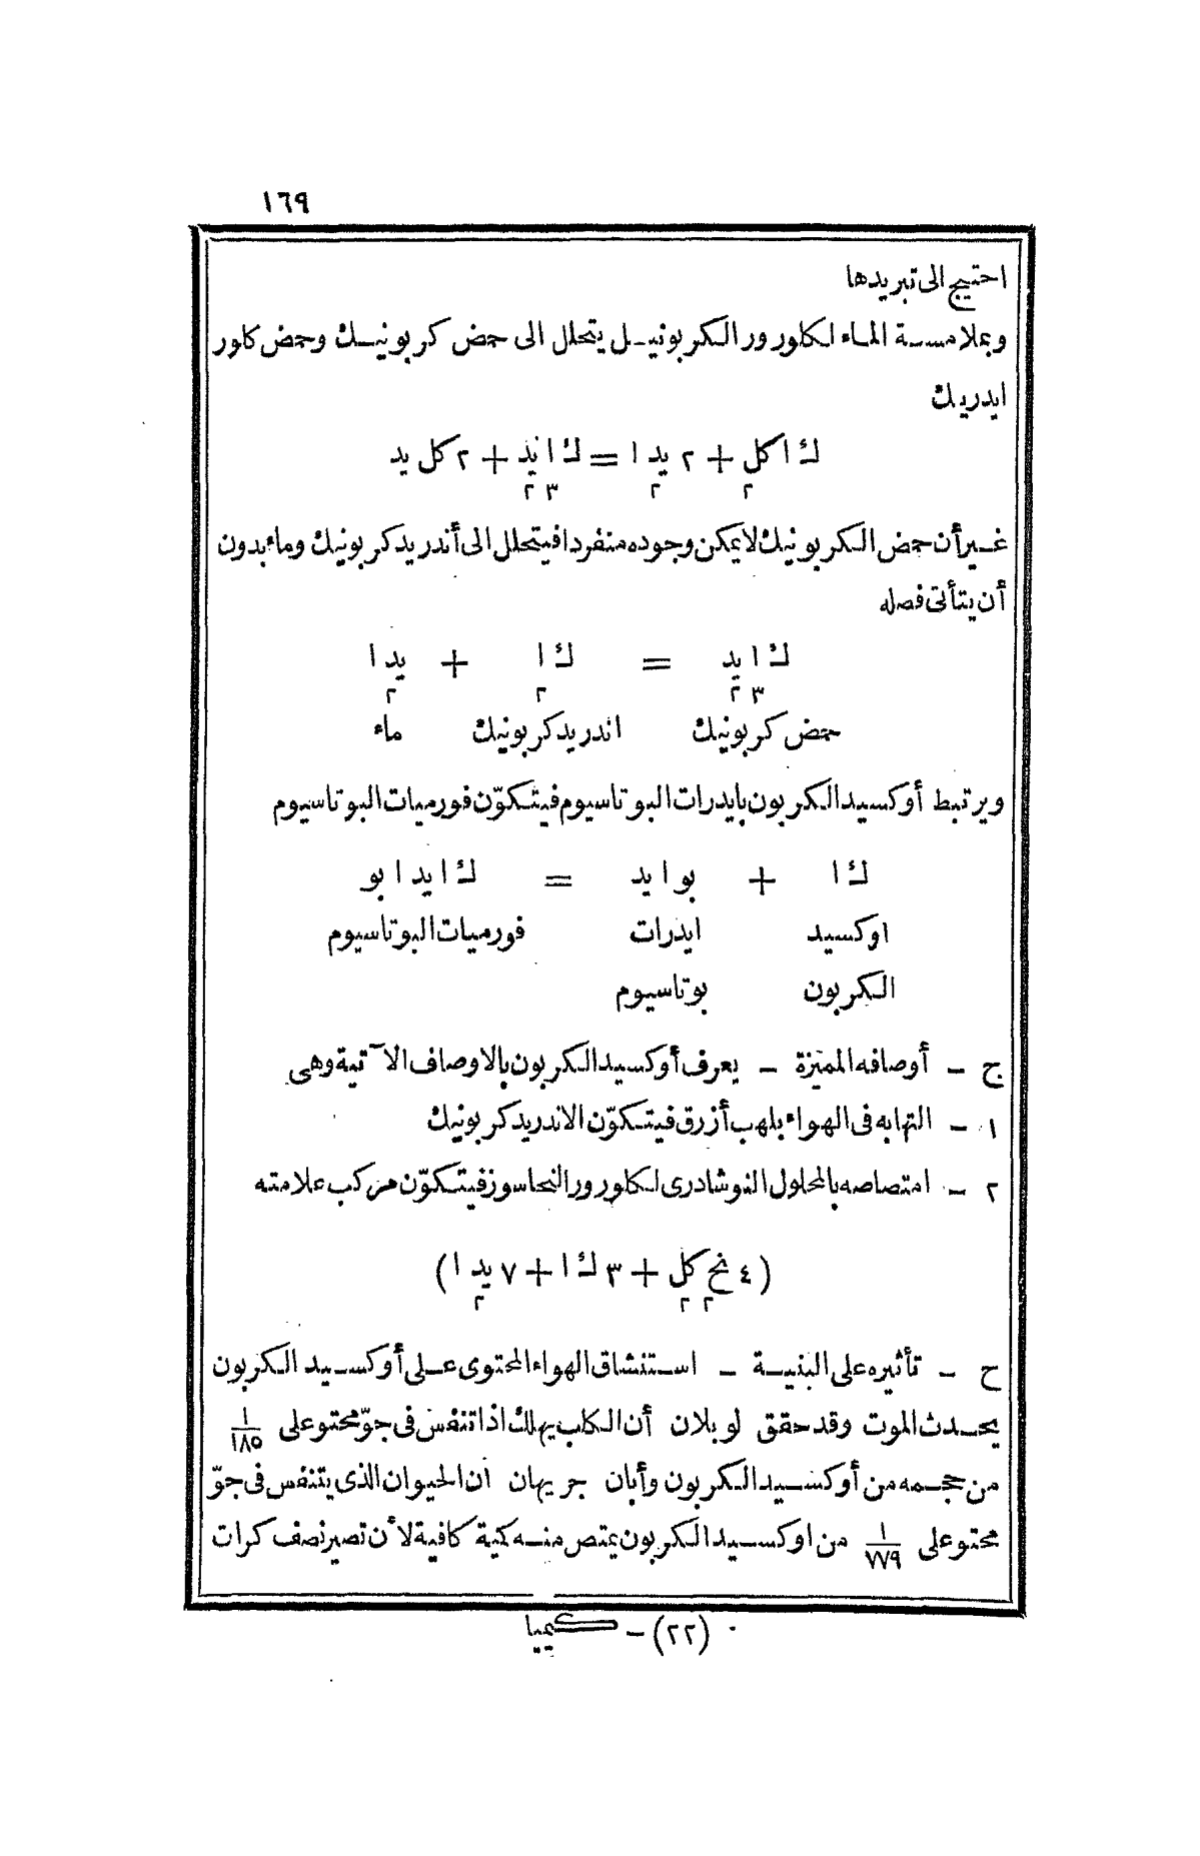 ١٦٩
احتيج الى تبريدها
وبملامسة الماء لكلورور الكربونيل يتحلل الى حمض كربونيك وحمض كلور
ايدريك
ك ا كل + ٢ يد ا = ك ا يد + ٢ كل يد
٢ ٢ ٣ ٢
غير أن حمض الكربونيك لا يمكن وجوده منفردا فيتحلل الى أندريد كربونيك وماء بدون
أن يتأتى فصله
ك ا يد = ك ا + يد ا
٣ ٢ ٢ ٢
حمض كربونيك اندريد كربونيك ماء
ويرتبط أوكسيد الكربون بايدرات البوتاسيوم فيتكوّن فورميات البوتاسيوم
ك ا + بو ا يد = ك ا يد ا بو
اوكسيد ايدرات فورميات البوتاسيوم
الكربون بوتاسيوم
ج - أوصافه المميزة - يعرف أوكسيد الكربون بالاوصاف الآتية وهى
١ - التهابه فى الهواء بلهب أزرق فيتكوّن الاندريد كربونيك
٢ - امتصاصه بالمحلول النوشادرى لكلورور النحاسوز فيتكوّن مركب علامته
(٤ نح كل + ٣ ك ا + ٧ يد ا)
٢ ٢ ٢
ح - تأثيره على البنية - استنشاق الهواء المحتوى على أوكسيد الكربون
يحدث الموت وقد حقق لوبلان أن الكلب يهلك اذا تنفس فى جوّ محتو على ١/١٨٥
من حجمه من أوكسيد الكربون وأبان جريهان أن الحيوان الذى يتنفس فى جوّ
محتو على ١/٧٧٩ من اوكسيد الكربون يمتص منه كمية كافية لأن تصير نصف كرات
(٢٢) - كيميا